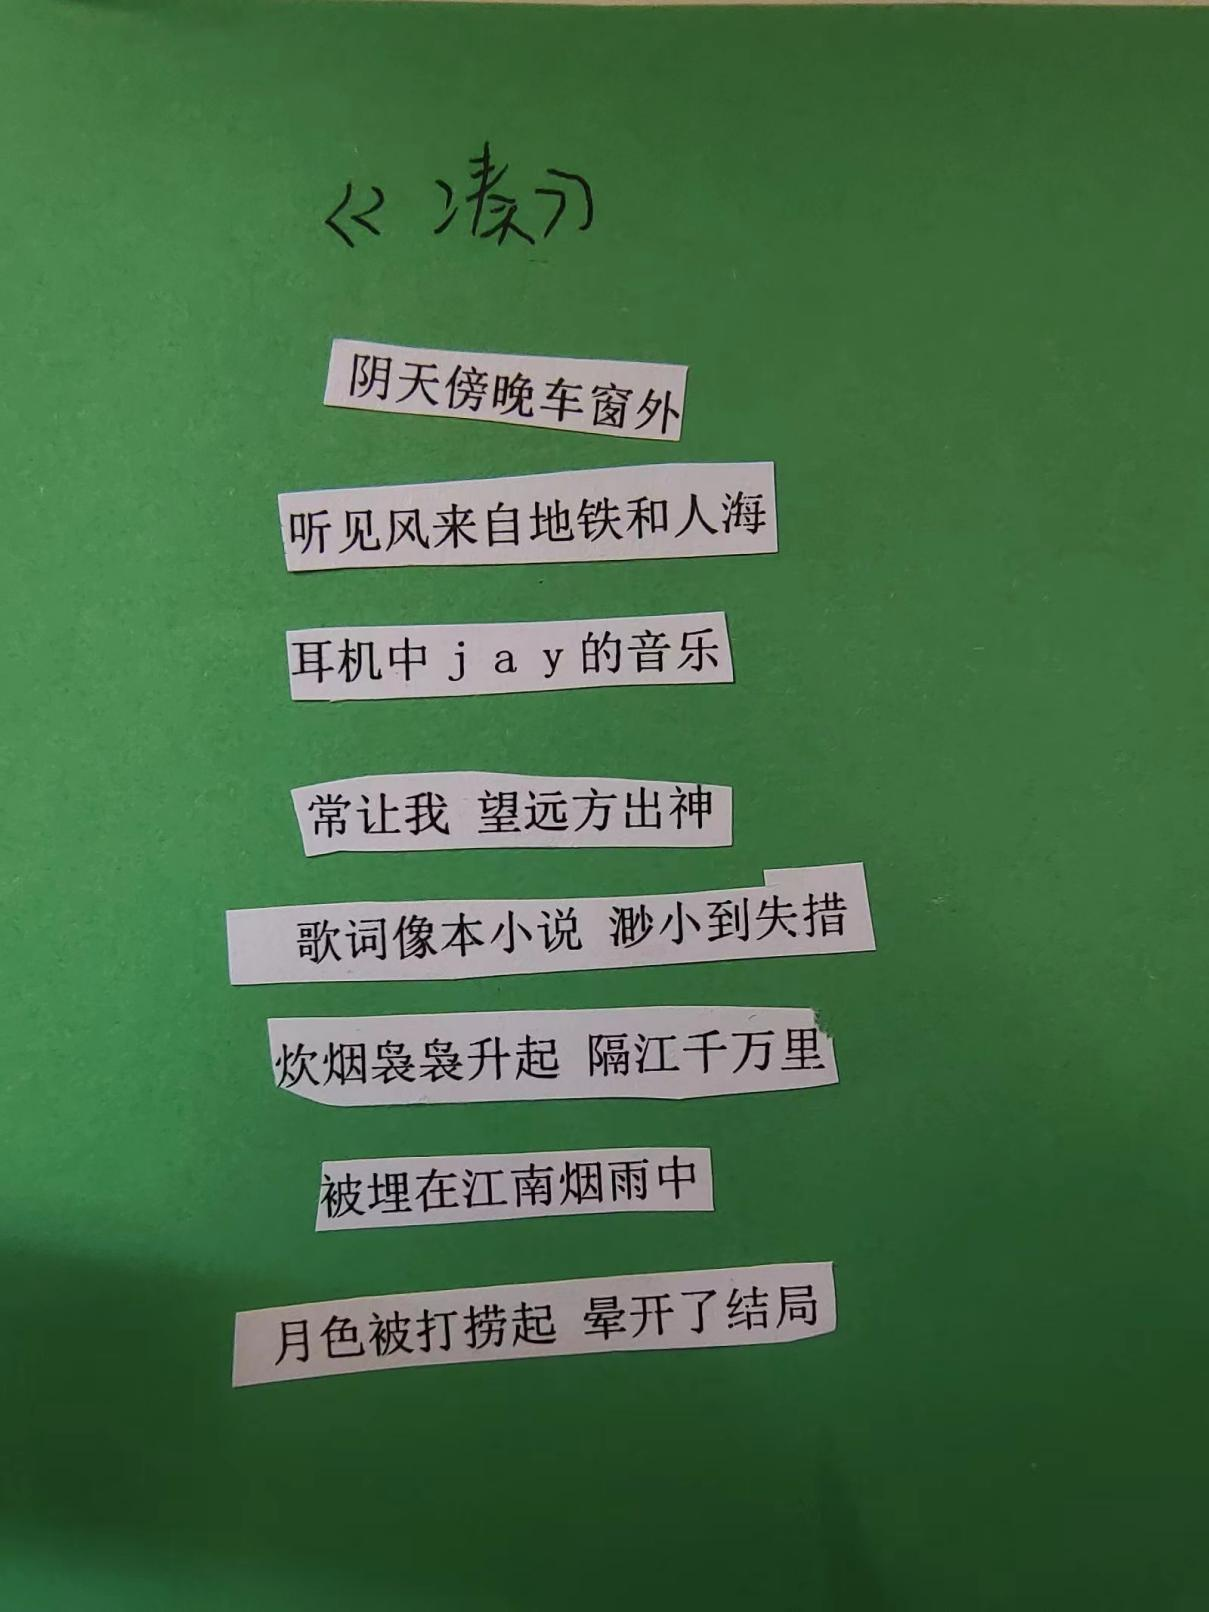 《凑》
阴天傍晚车窗外
听见风来自地铁和人海
耳机中jay的音乐
常让我 望远方出神
歌词像本小说 渺小到失措
炊烟袅袅升起 隔江千万里
被埋在江南烟雨中
月色被打捞起 晕开了结局